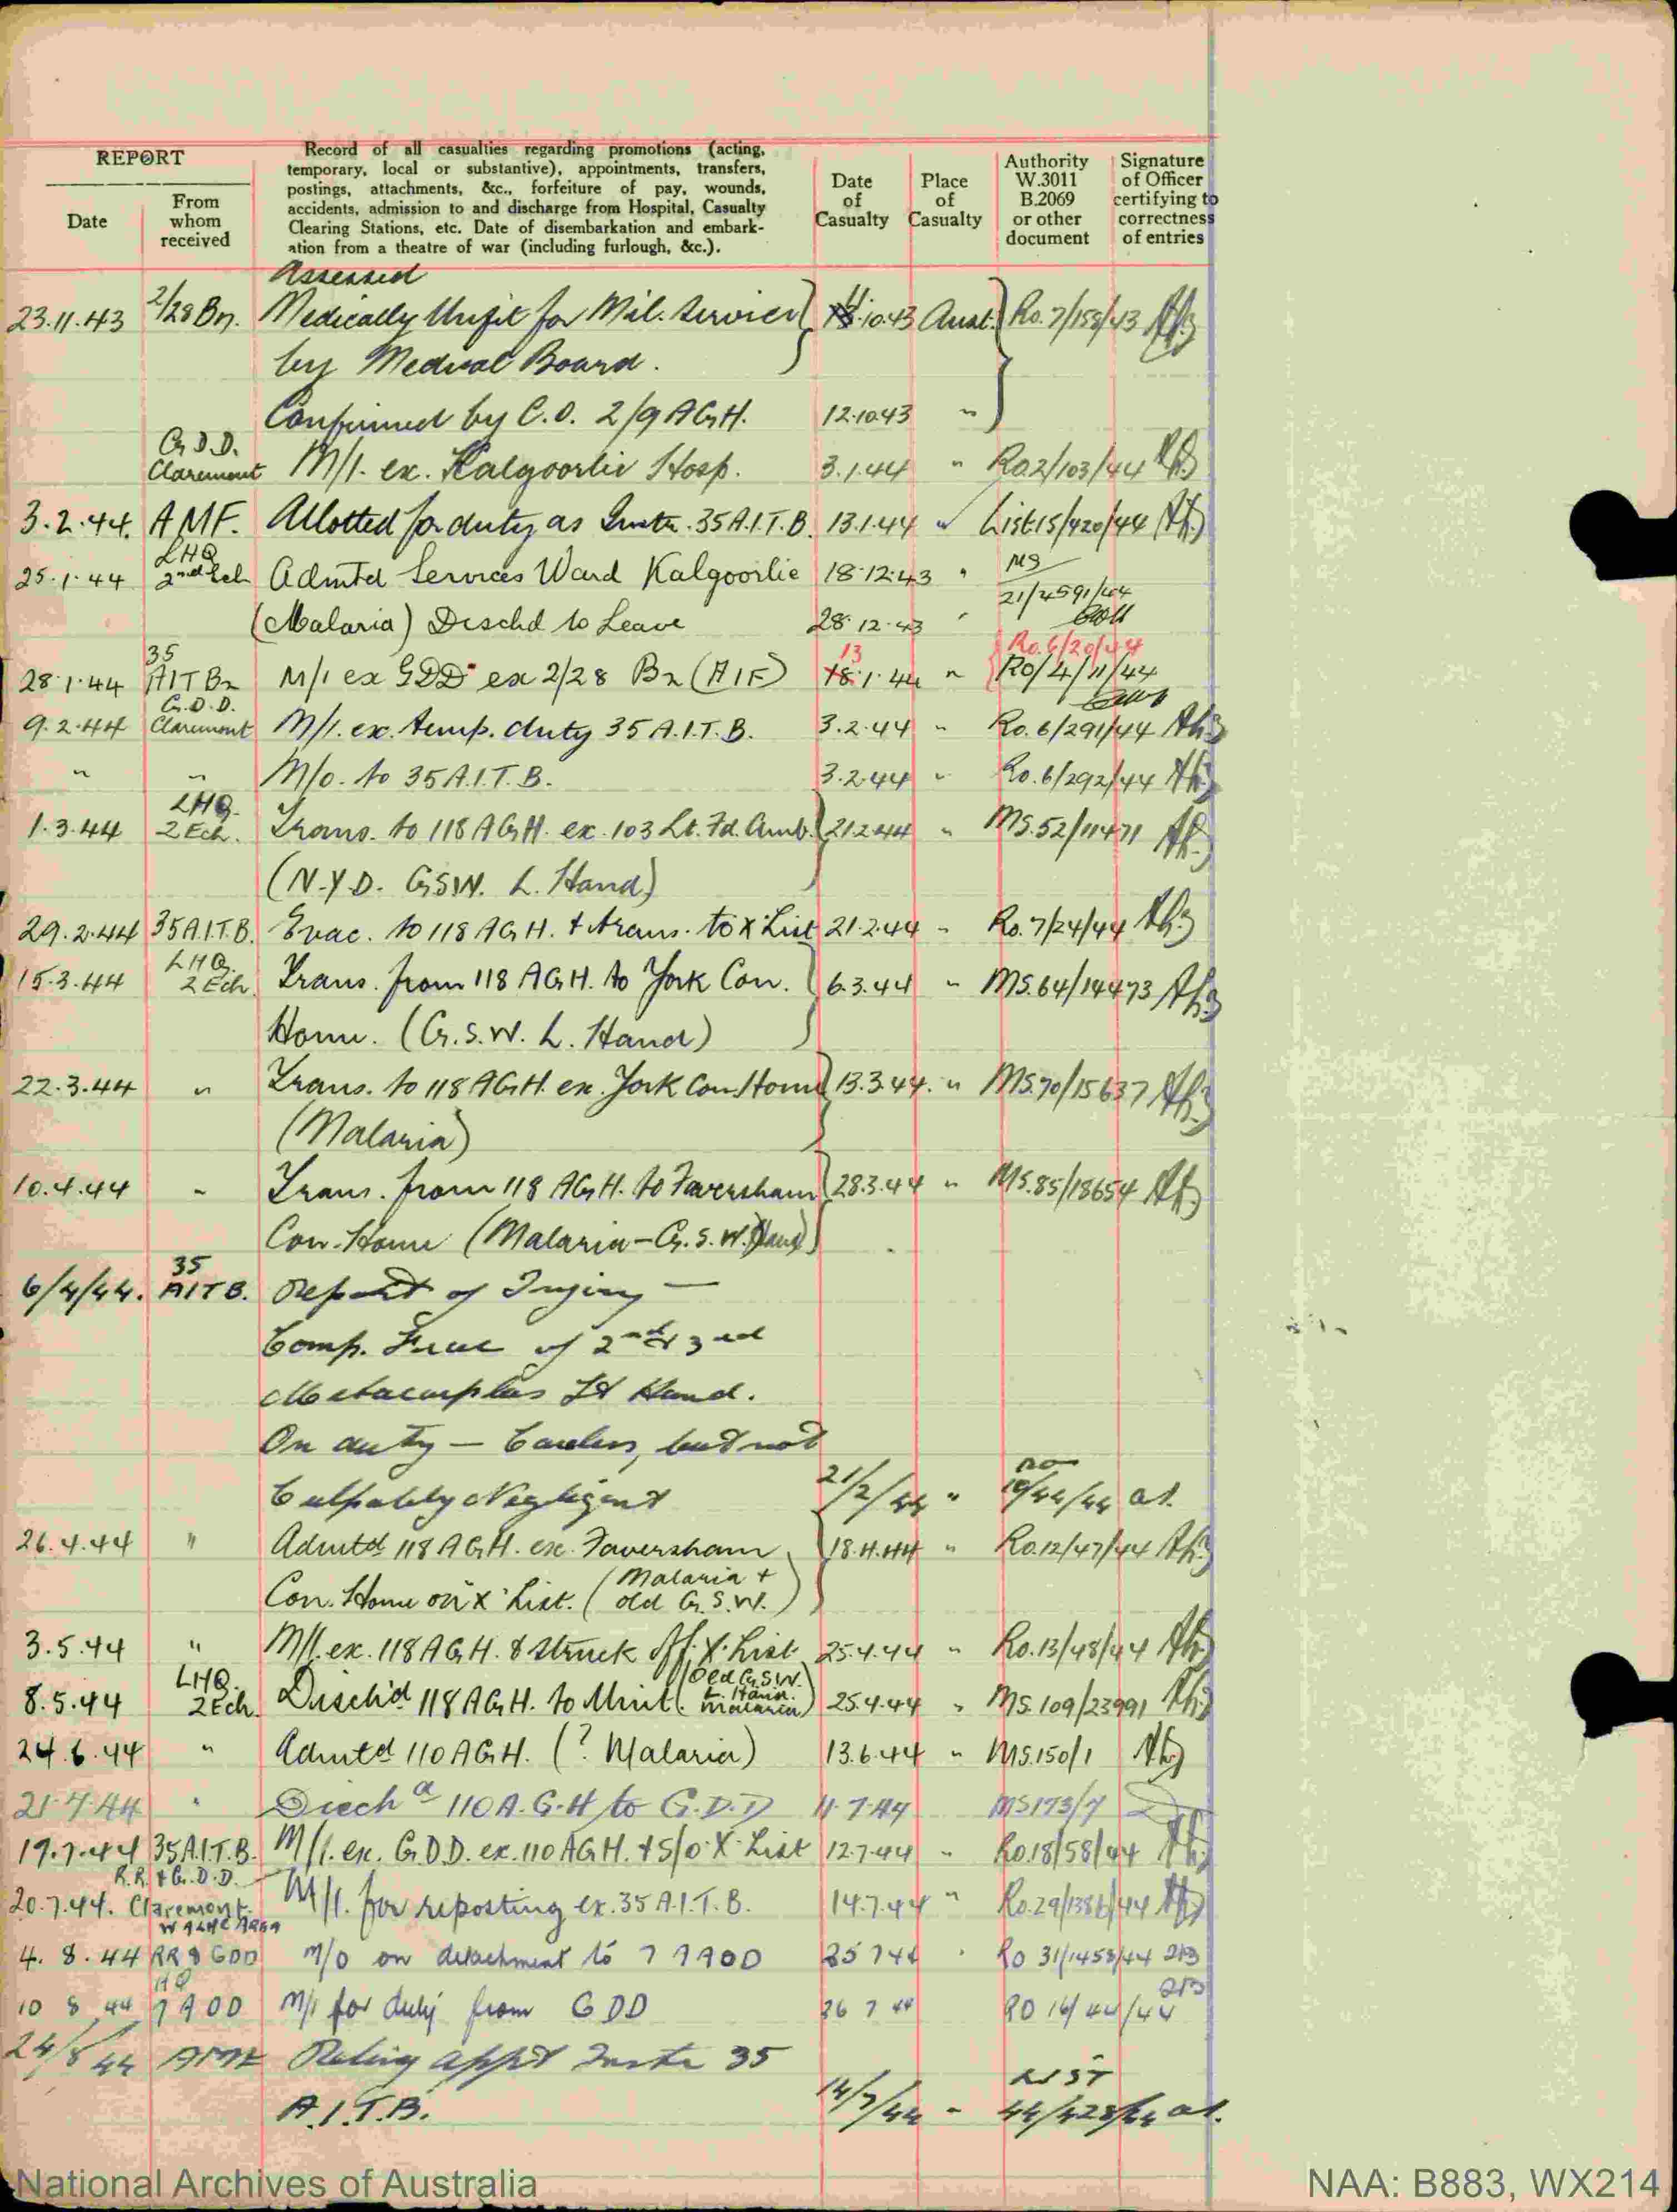 REPORT
Date
From whom received
Record of all casualties regarding promotions (acting,
temporary, local or substantive), appointments, transfers,
postings, attachments, &c., forfeiture of pay, wounds,
accidents, admission to and discharge from Hospital, Casualty
Clearing Stations, etc. Date of disembarkation and embark-
ation from a theatre of war (including furlough, &c.).
Date of Casualty
Place of Casualty
Authority W.3011 B.2069 or other document
Signature of Officer certifying to correctness of entries
Assessed
23.11.43 2/28 Bn. Medically Unfit for Mil. Service .10.43 Aust. Ro.7/158/43
by Medical Board.
Confirmed by C.O. 2/9 AGH. 12.10.43 "
G.D.D.
Claremont M/I. ex. Kalgoorlie Hosp. 3.1.44 " Ro.2/103/44
3.2.44. AMF. Allotted for duty as Instr. 35 A.I.T.B. 13.1.44 " List 15/420/44
LHQ MS
25.1.44 2nd Ech Admtd Services Ward Kalgoorlie 18.12.43 " 21/4591/44
(Malaria) Dischd to Leave 28.12.43 "
35 13 Ro.6/20/44
28.1.44 AITBn M/I ex GDD ex 2/28 Bn (AIF) 18.1.44 " RO/4/11/44
G.D.D.
9.2.44 Claremont M/I. ex. temp. duty 35 A.I.T.B. 3.2.44 " Ro.6/291/44
" " M/O. to 35 A.I.T.B. 3.2.44 " Ro.6/292/44
LHQ.
1.3.44 2 Ech. Trans. to 118 AGH. ex. 103 Lt. Fd. Amb. 21.2.44 " MS.52/11471
(N.Y.D. GSW. L. Hand)
29.2.44 35 A.I.T.B. Evac. to 118 AGH. & trans. to X List 21.2.44 " Ro.7/24/44
LHQ.
15.3.44 2 Ech. Trans. from 118 AGH. to York Con. 6.3.44 " MS.64/14473
Home. (G.S.W. L. Hand)
22.3.44 " Trans. to 118 AGH. ex. York Con. Home 13.3.44. " MS.70/15637
(Malaria)
10.4.44 " Trans. from 118 AGH. to Faversham 28.3.44 " MS.85/18654
Con. Home (Malaria - G.S.W. Hand)
35
6/4/44. AITB. Report of Injury —
Comp. Frac of 2nd & 3rd
Metacarplas Lt Hand.
On duty — Careless, but not
RO
Culpably Negligent 21/2/44 " 10/44/44
26.4.44 " Admtd 118 AGH. ex. Faversham 18.4.44 " Ro.12/47/44
Con. Home on 'X' List. (Malaria + old G.S.W.)
3.5.44 " M/I. ex. 118 AGH. & struck off. X. List 25.4.44 " Ro.13/48/44
LHQ.
8.5.44 2 Ech. Disch'd 118 AGH. to Unit (Old G.S.W. L. Hand. Malaria) 25.4.44 " MS.109/23991
24.6.44 " Admtd 110 AGH. (? Malaria) 13.6.44 " MS.150/1
21.7.44 " Disch'd 110 A.G.H to G.D.D 11.7.44 MS173/7
19.7.44 35 A.I.T.B. M/I. ex. G.D.D. ex. 110 AGH. & S/O. X. List 12.7.44 " Ro.18/58/44
R.R. & G.D.D.
20.7.44. Claremont. M/I. for reposting ex. 35 A.I.T.B. 14.7.44 " Ro.29/1386/44
W A L of C Area
4. 8. 44 RR & GDD M/O on detachment to 7 AAOD 25 7 44 " RO 31/1453/44
HQ
10 8 44 7 AOD M/I for duty from GDD 26 7 44 RO 16/44/44
24/8/44 AMF Reling appt Instr 35
LIST
A.I.T.B. 14/7/44 " 44/428/44
National Archives of Australia
NAA: B883, WX214